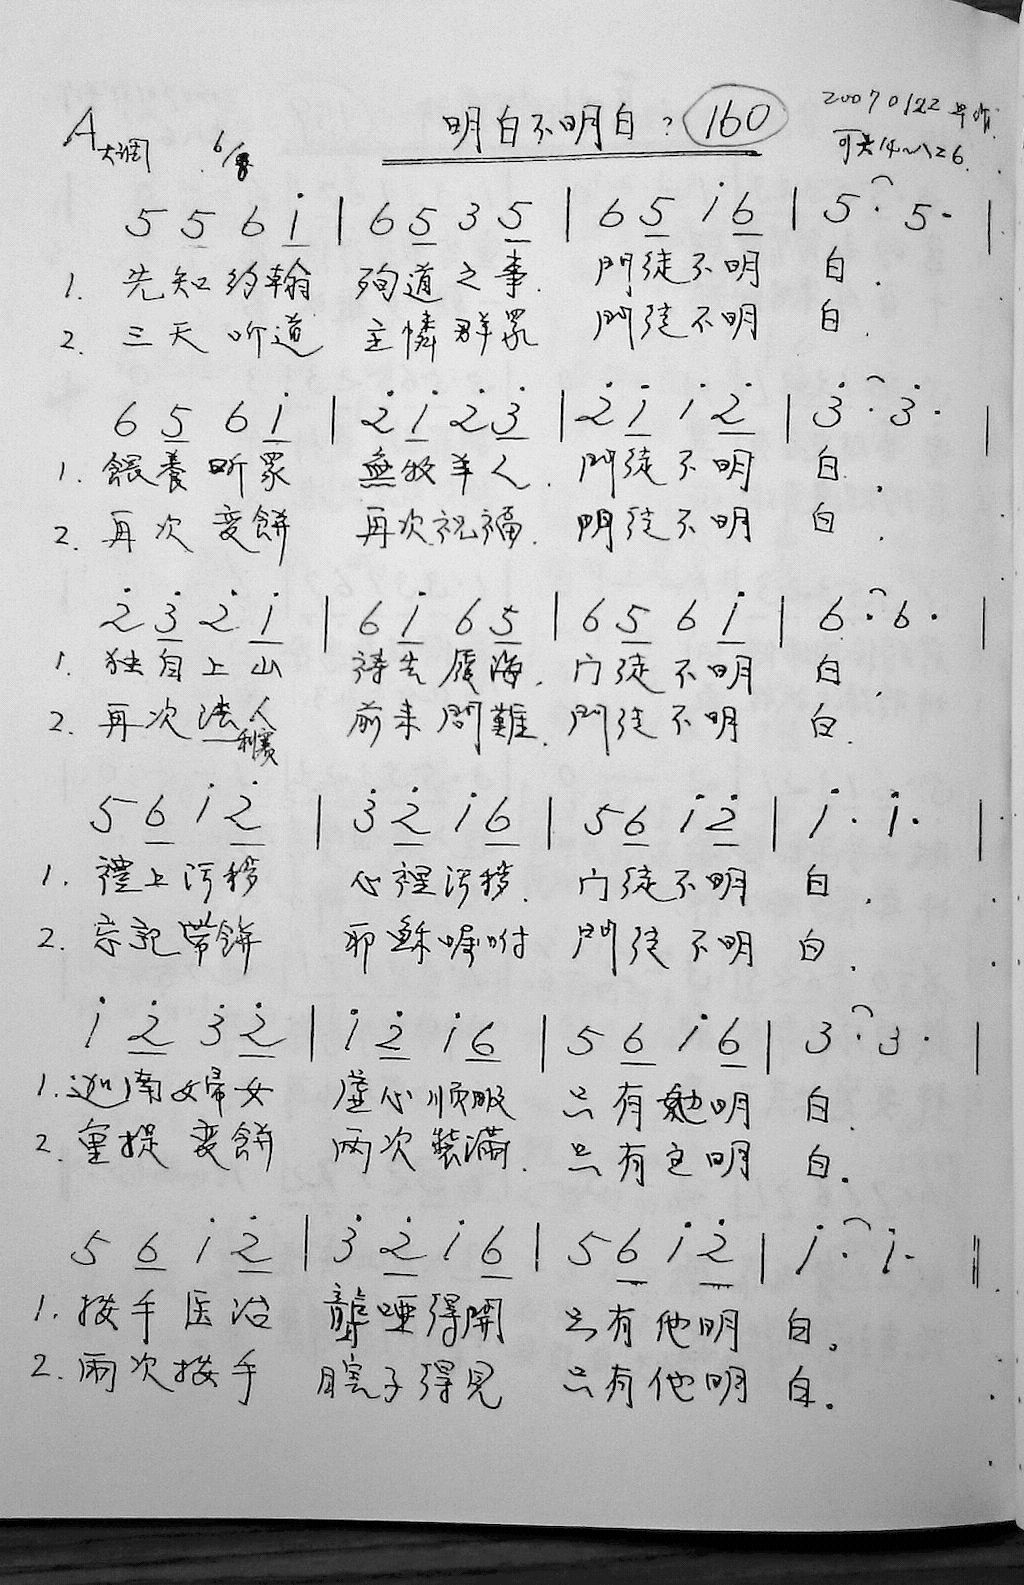 A大调 6/8 明白不明白? 160 20070122
可六14~126.
5 5 6 i | 6 5 3 5 | 6 5 i 6 | 5· 5· |
1. 先知约翰 殉道之事. 門徒不明 白.
2. 三天听道 主憐群眾 門徒不明 白.
6 5 6 i | 2̇ i 2̇ 3̇ | 2̇ i i 2̇ | 3̇· 3̇· |
1. 餵養听眾 無牧羊人. 門徒不明 白.
2. 再次变餅 再次祝福. 門徒不明 白.
2̇ 3̇ 2̇ i | 6 i 6 5 | 6 5 6 i | 6· 6· |
1. 独自上山 禱告履海. 门徒不明 白.
2. 再次法人利赛 前来問難. 門徒不明 白.
5 6 i 2̇ | 3̇ 2̇ i 6 | 5 6 i 2̇ | i· i· |
1. 禮上污秽 心裡污秽. 门徒不明 白.
2. 忘記带餅 耶穌嘱咐 門徒不明 白.
i 2̇ 3̇ 2̇ | i 2̇ i 6 | 5 6 i 6 | 3· 3· |
1. 迦南妇女 虚心顺服 只有她明 白.
2. 重提变餅 两次装满. 只有主明 白.
5 6 i 2̇ | 3̇ 2̇ i 6 | 5 6 i 2̇ | i· i· ‖
1. 按手医治 聾啞得開 只有他明 白.
2. 兩次按手 瞎子得見 只有他明 白.